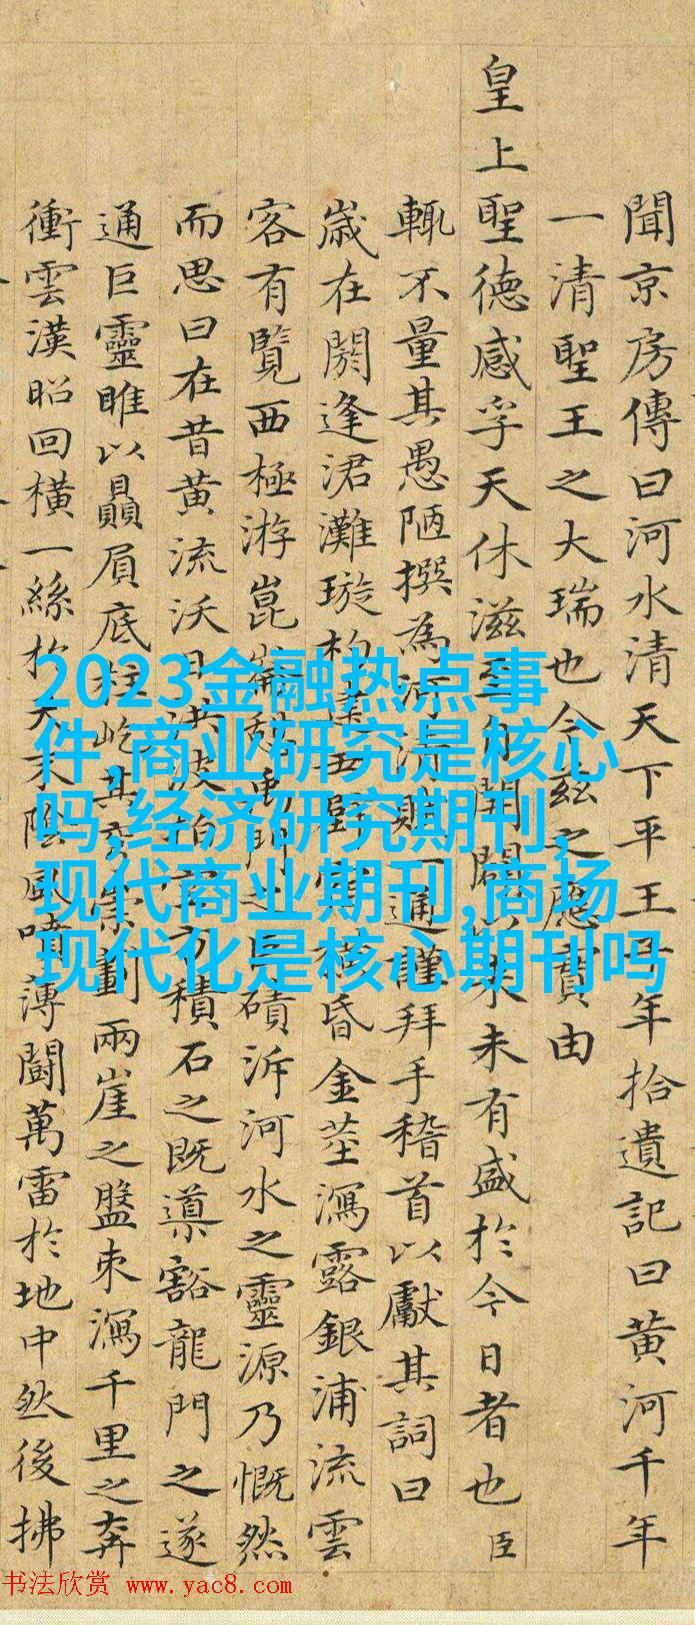 聞京房傳曰河水清天下平王子年拾遺記曰黄河千年
一清聖王之大瑞也今兹之應實由
皇上聖德感孚天休滋至自開闢以来未有盛於今日者也臣
輒不量其愚陋撰為河清賦一通謹拜手稽首以獻其詞曰
歳在閼逢涒灘璇杓建
昏金莖瀉露銀浦流雲
客有覽西極游崑崙
磧泝河水之靈源乃慨然
而思曰在昔黄流沃日洪波
積石之既導豁龍門之遂
通巨靈睢以贔屓底柱屹其
劃兩崖之盤束瀉千里之奔
衝雲漢昭回横一絲於天末陰風
薄鬪萬雷於地中然後拂
2023金融热点事
件,商业研究是核心
吗,经济研究期刊,
现代商业期刊,商场
现代化是核心期刊吗
书法欣赏 www.yac8.com